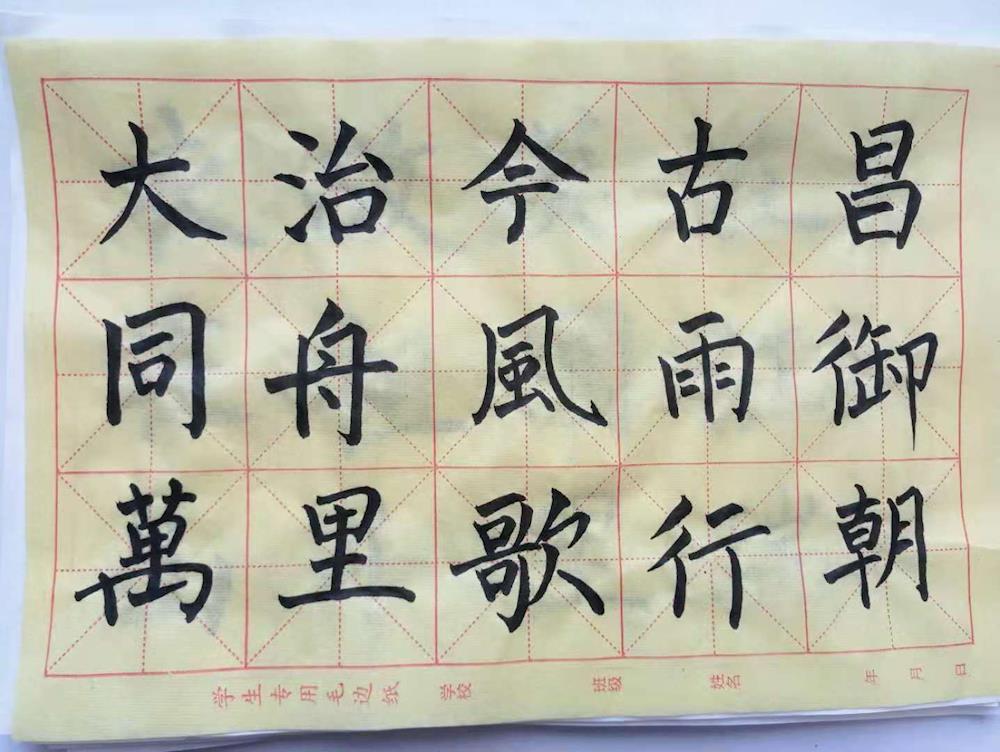 大治今古昌
同舟風雨御
萬里歌行朝
学生专用毛边纸 学校 班级 姓名 年 月 日